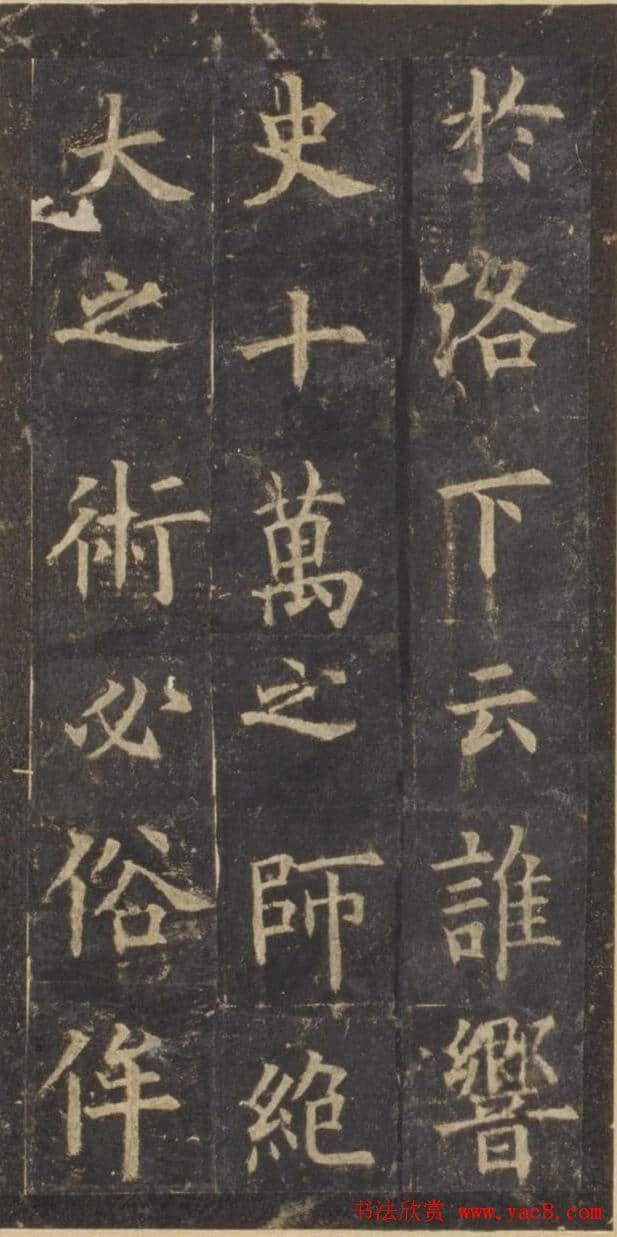 於洛下云誰響
史十萬之師絶
大之術必俗侔
书法欣赏 www.yac8.com